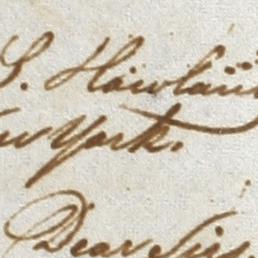 S. Howland
New York.
Dear Sir,